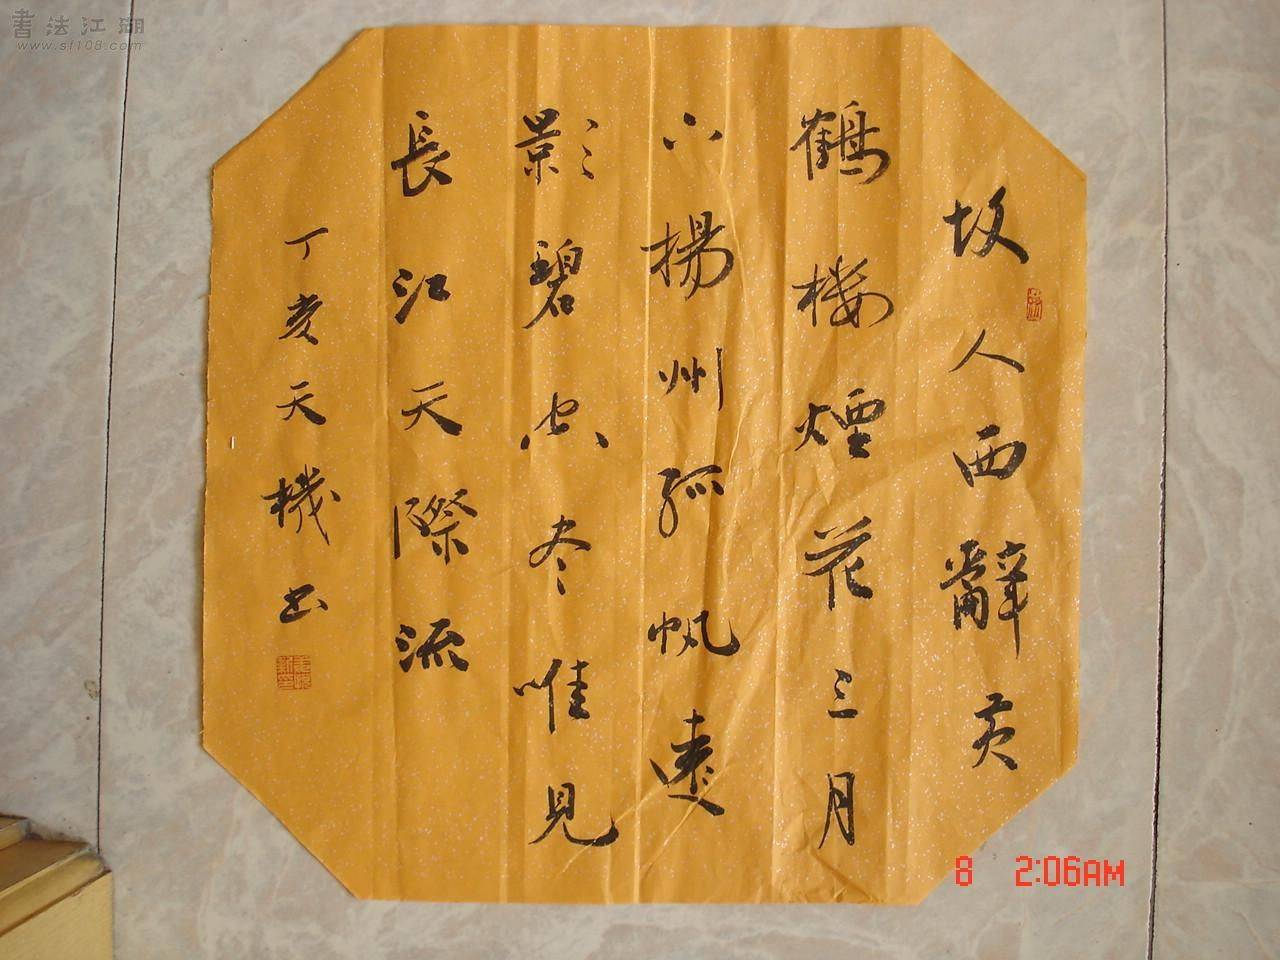 故人西辭黃
鶴樓煙花三月
下揚州孤帆遠
影碧空尽唯見
長江天際流
丁亥天機书
書法江湖
www.sf108.com
8 2:06AM